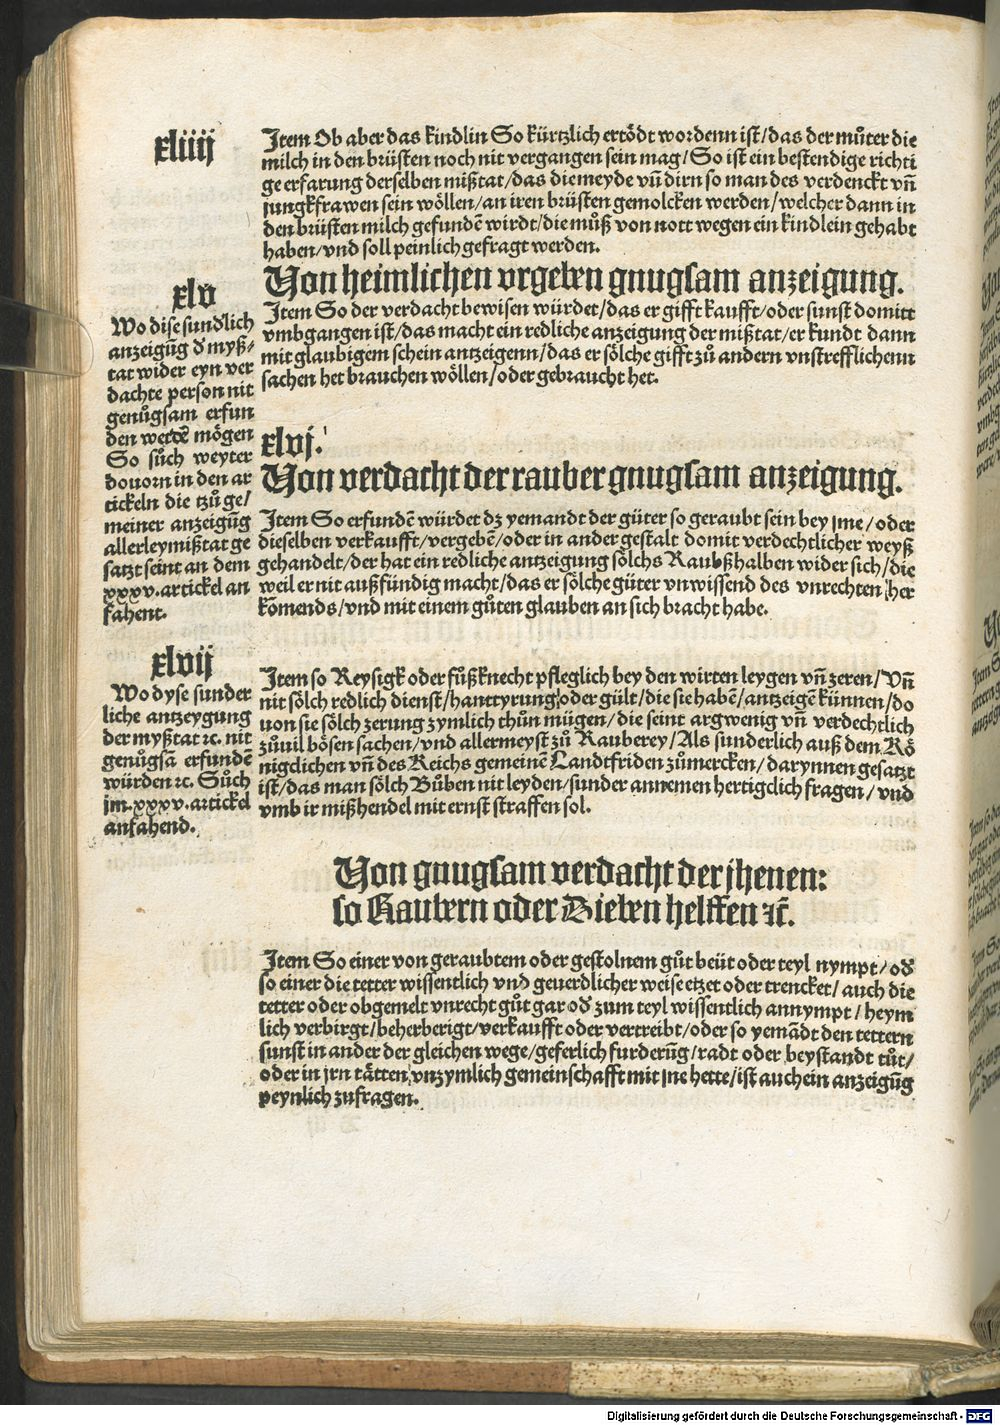 xliiij
Item Ob aber das kindlin So kürtzlich ertödt wordenn ist/das der můter die
milch in den brüsten noch nit vergangen sein mag/So ist ein bestendige richti
ge erfarung derselben mißtat/das die meyde vñ dirn so man des verdenckt vñ
jungkfrawen sein wöllen/an iren brüsten gemolcken werden/welcher dann in
den brüsten milch gefundē wirdt/die můß von nott wegen ein kindlein gehabt
haben/vnd soll peinlich gefragt werden.
Von heimlichen vrgeben gnugsam anzeigung.
xlv
Wo dise sundlich
anzeigūg d myß-
tat wider eyn ver
dachte person nit
genůgsam erfun
den werdē mögen
So sůch weyter
douorn in den ar
tickeln die tzů ge/
meiner anzeigūg
allerley mißtat ge
satzt seint an dem
xxxv. artickel an
fahent.
Item So der verdacht bewisen würdet/das er gifft kaufft/oder sunst domitt
vmbgangen ist/das macht ein redliche anzeigung der mißtat/er kundt dann
mit glaubigem schein antzeigenn/das er sölche gifft zů andern vnstrefflichenn
sachen het brauchen wöllen/oder gebraucht het.
xlvj.
Von verdacht der rauber gnugsam anzeigung.
Item So erfundē würdet dz yemandt der güter so geraubt sein bey jme/oder
dieselben verkaufft/vergebē/oder in ander gestalt domit verdechtlicher weyß
gehandelt/der hat ein redliche antzeigung sölchs Raubßhalben wider sich/die
weil er nit außfündig macht/das er sölche güter vnwissend des vnrechten her
kōmends/vnd mit einem gůten glauben an sich bracht habe.
xlvij
Wo dyse sunder
liche antzeygung
der myßtat ꝛc. nit
genůgsā erfundē
würden ꝛc. Sůch
jm. xxxv. artickel
anfahend.
Item so Reysigk oder fůßknecht pfleglich bey den wirten leygen vñ zeren/Vñ
nit sölch redlich dienst/hanttyrung oder gült/die sie habē/antzeigē künnen/do
uon sie sölch zerung zymlich thůn mügen/die seint argwenig vñ verdechtlich
zůuil bösen sachen/vnd allermeyst zů Rauberey/Als sunderlich auß dem Rö
nigclichen vñ des Reichs gemeinē Landtfriden zůmercken/darynnen gesatzt
ist/das man sölch Bůben nit leyden/sunder annemen hertigclich fragen/vnd
vmb ir mißhendel mit ernst straffen sol.
Von gnugsam verdacht der jhenen:
so Raubern oder Dieben helffen ꝛc.
Item So einer von geraubtem oder gestolnem gůt beüt oder teyl nympt/od
so einer die tetter wissentlich vnd geuerdlicher weise etzet oder trencket/auch die
tetter oder obgemelt vnrecht gůt gar od zum teyl wissentlich annympt/heym
lich verbirgt/beherberigt/verkaufft oder vertreibt/oder so yemādt den tettern
sunst in ander der gleichen wege/geferlich furderūg/radt oder beystandt tůt/
oder in jrn tätten vnzymlich gemeinschafft mit jne hette/ist auch ein anzeigūg
peynlich zufragen.
Digitalisierung gefördert durch die Deutsche Forschungsgemeinschaft - DFG